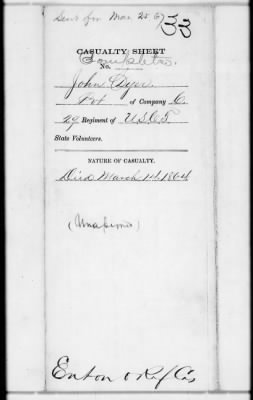 Sent for Mar 25 67
33
CASUALTY SHEET
Complete.
No.
John Dyer
Pvt of Company C.
29 Regiment of U.S.C.T.
State Volunteers.
NATURE OF CASUALTY.
Died March 1st 1864